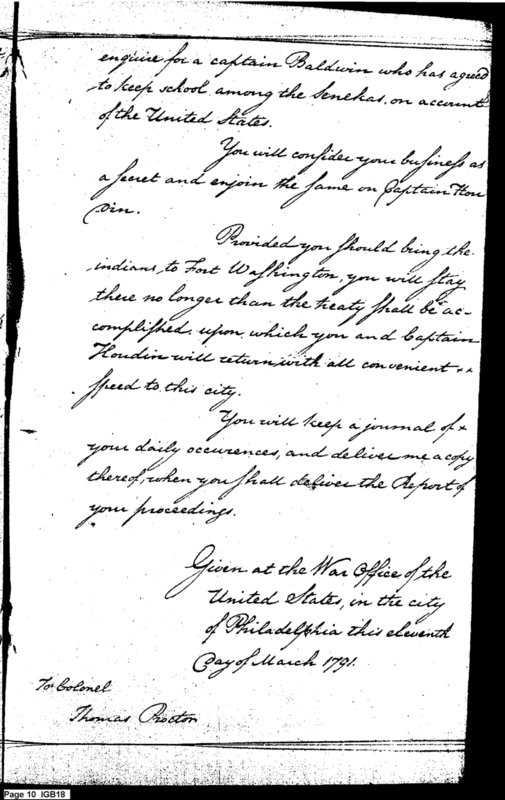 enquire for a captain Baldwin who has agreed
to keep school among the Senekas, on account
of the United States.
You will consider your business as
a secret and enjoin the same on Captain Hou
din.
Provided you should bring the
indians, to Fort Washington, you will stay
there no longer than the treaty shall be ac-
complished, upon which you and Captain
Houdin will return with all convenient
speed to this city.
You will keep a journal of
your daily occurences, and deliver me a copy
thereof, when you shall deliver the Report of
your proceedings.
Given at the War Office of the
United States, in the city
of Philadelphia this eleventh
Day of March 1791.
To Colonel
Thomas Procton
Page 10 IGB18